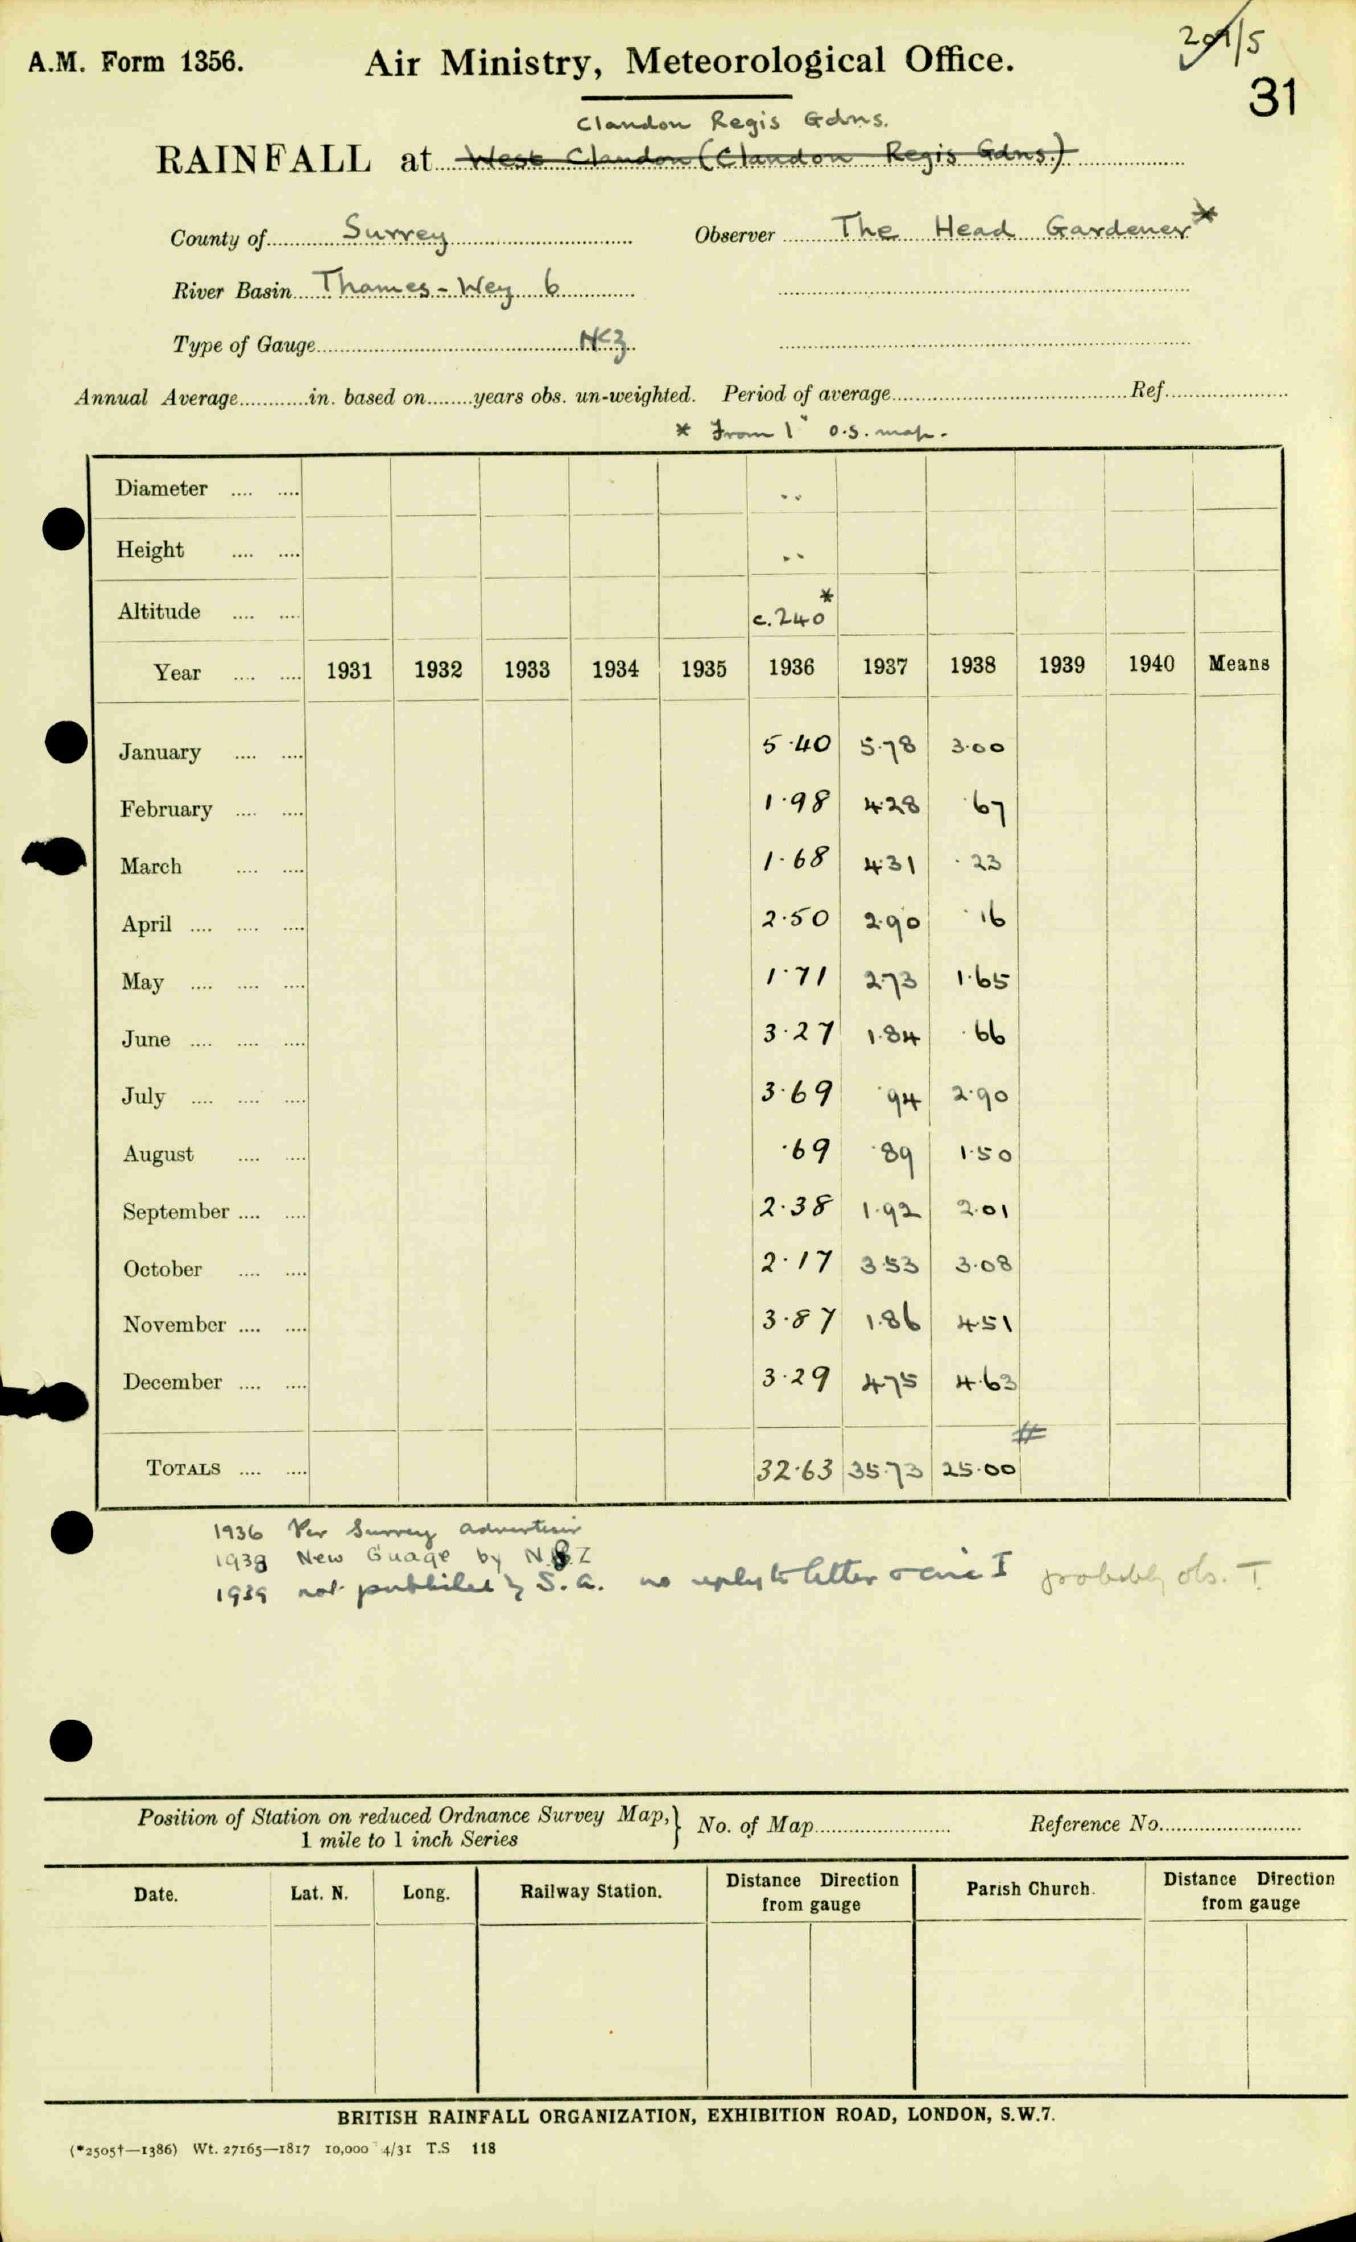 A.M. Form 1356.
Air Ministry, Meteorological Office.
31
Clandon Regis Gdns.
RAINFALL at West Clandon (Clandon Regis Gdns.)
County of Surrey Observer The Head Gardener *
River Basin Thames - Wey 6
Type of Gauge
Annual Average in. based on years obs. un-weighted. Period of average Ref.
* From 1" O.S. map.
Diameter ..
Height ..
Altitude c. 240 *
Year 1931 1932 1933 1934 1935 1936 1937 1938 1939 1940 Means
January 5.40 5.78 3.00
February 1.98 4.28 .67
March 1.68 4.31 .23
April 2.50 2.90 .16
May 1.71 2.73 1.65
June 3.27 1.84 .66
July 3.69 .94 2.90
August .69 .89 1.50
September 2.38 1.92 2.01
October 2.17 3.53 3.08
November 3.87 1.86 4.51
December 3.29 4.75 4.63
TOTALS 32.63 35.73 25.00 #
1936 Per Surrey Advertiser
1938 New Guage by N Z
1939 not published by S.A. no reply to letter probably obs. T.
Position of Station on reduced Ordnance Survey Map, } No. of Map Reference No.
1 mile to 1 inch Series
Date. Lat. N. Long. Railway Station. Distance Direction from gauge Parish Church. Distance Direction from gauge
BRITISH RAINFALL ORGANIZATION, EXHIBITION ROAD, LONDON, S.W.7.
(*2505†—1386) Wt. 27165—1817 10,000 4/31 T.S 118